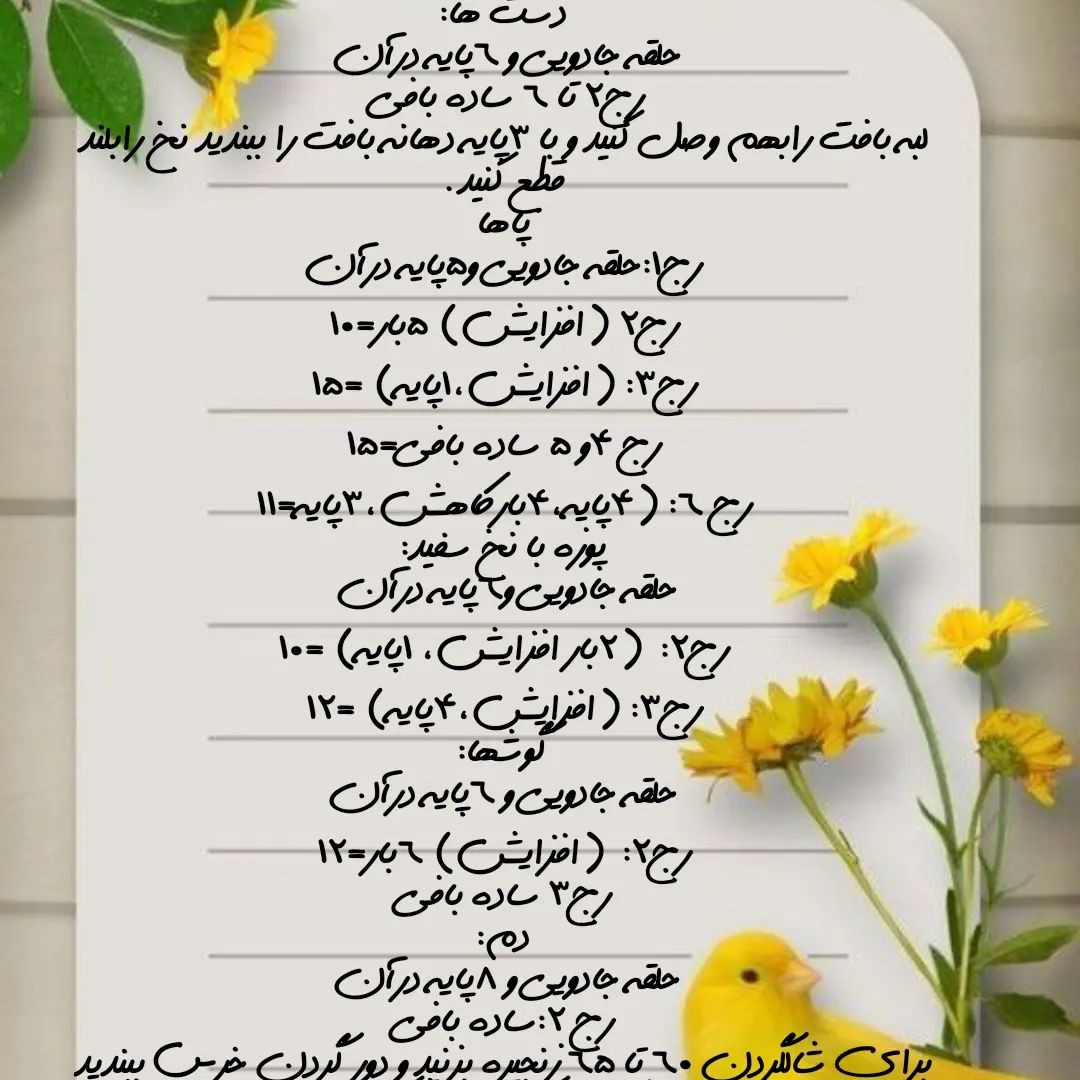 دست ها:
حلقه جادویی و ٦ پایه در آن
رج۲ تا ٦ ساده بافی
لبه بافت را بهم وصل کنید و با ۳ پایه دهانه بافت را ببندید نخ را بلند
قطع کنید.
پاها
رج۱: حلقه جادویی و۵پایه در آن
رج۲ ( افزایش ) ۵بار=۱۰
رج۳: ( افزایش ،۱پایه) =۱۵
رج ۴و ۵ ساده بافی=۱۵
رج ٦: ( ۴پایه، ۴بار کاهش ، ۳پایه=۱۱
پوزه با نخ سفید:
حلقه جادویی و٦ پایه در آن
رج۲: (۲بار افزایش ، ۱پایه) =۱۰
رج۳: ( افزایش ،۴پایه) =۱۲
گوشها:
حلقه جادویی و ٦پایه در آن
رج۲: ( افزایش ) ٦بار=۱۲
رج۳ ساده بافی
دم:
حلقه جادویی و ۸پایه در آن
رج ۲: ساده بافی
برای شالگردن ٦۰ تا ٦۵ زنجیره بزنید و دور گردن خرس ببندید